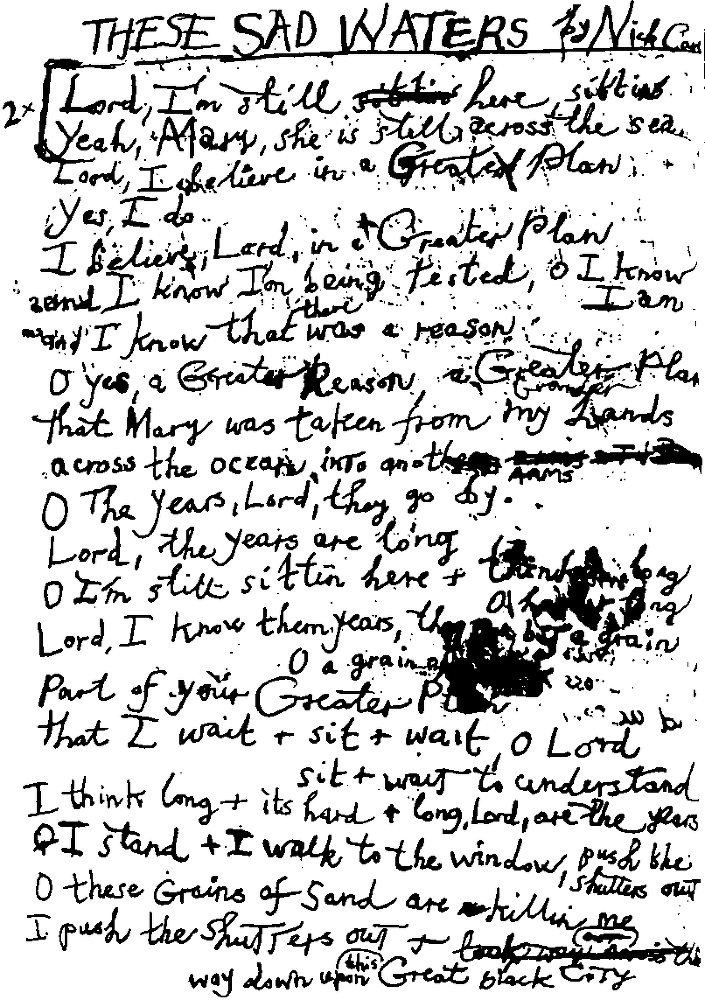 THESE SAD WATERS by Nick Cav
2x
Lord, I'm still here, sittin
Yeah, Mary, she is still, across the sea.
Lord, I believe in a Greater Plan
Yes, I do
I believe, Lord, in a Greater Plan
and I know I'm being tested, O I know
I am
and I know that there was a reason
O yes, a Greater Reason, a Greater Plan
Grander
that Mary was taken from my hands
across the ocean, into another
ARMS
O The years, Lord, they go by.
Lord, the years are long
O I'm still sittin here + long
Lord, I know them years, a grain
O a grain
Part of your Greater Plan
that I wait + sit + wait, O Lord
sit + wait to understand
I think long + its hard + long, Lord, are the years
I stand + I walk to the window, push the
shutters out
O these Grains of Sand are killin me
I push the shutters out +
way down upon this Great black City